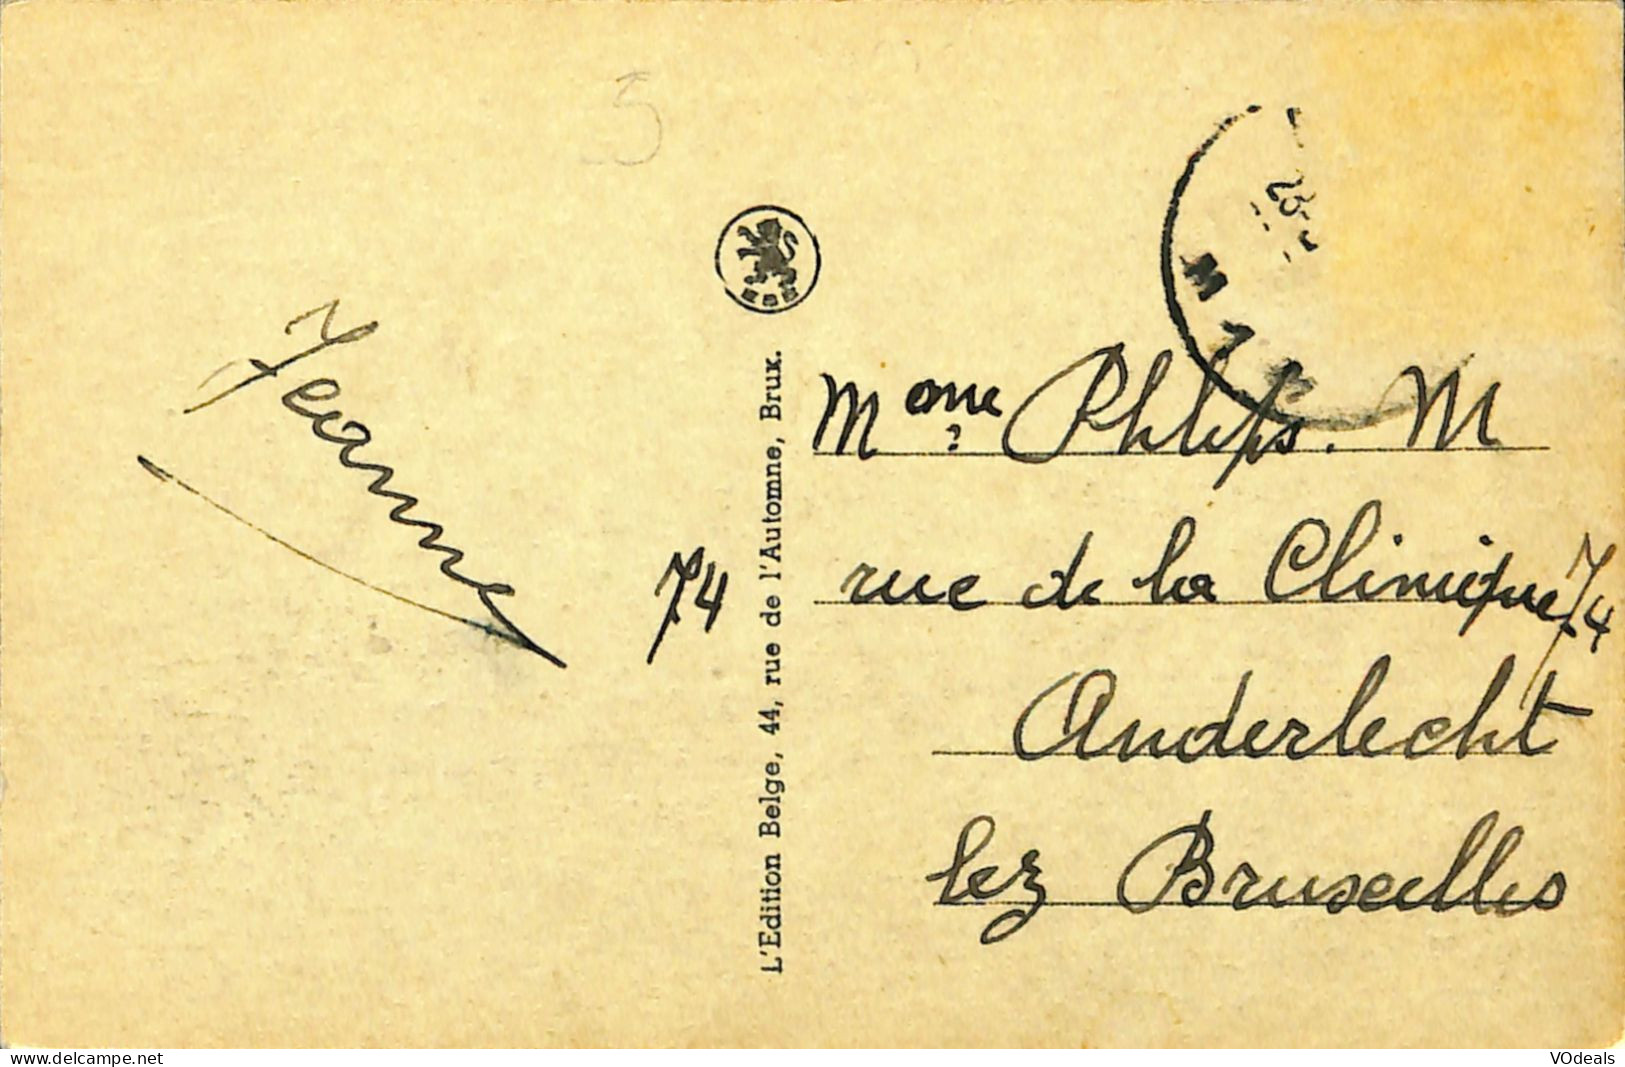 5
Jeanne
74
L'Edition Belge, 44, rue de l'Automne, Brux.
Mme Phlips. M
rue de la Clinique 74
Anderlecht
lez Bruxelles
delcampe.net
VOdeals